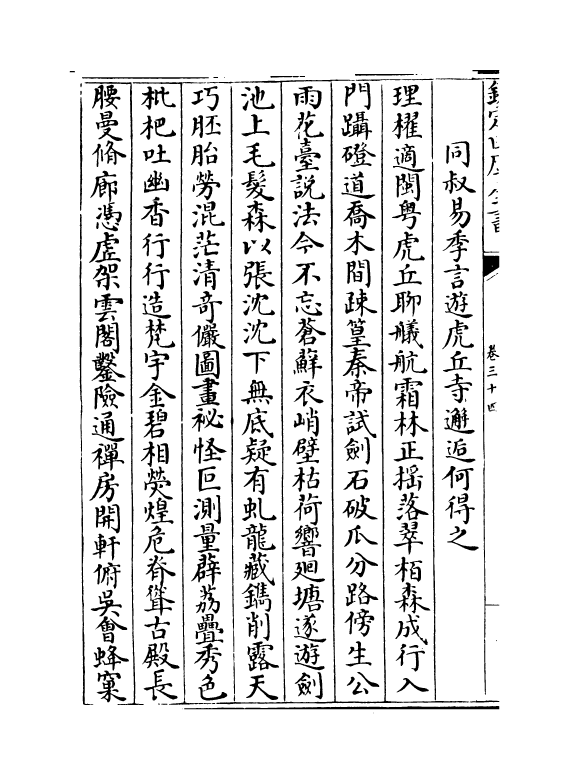 欽定四庫全書
卷三十四
同叔易季言遊虎丘寺邂逅何得之
理櫂適閩粤虎丘聊艤航霜林正揺落翠栢森成行入
門躡磴道喬木間疎篁秦帝試劍石破瓜分路傍生公
雨花臺説法今不忘蒼蘚衣峭壁枯荷響廻塘遂遊劍
池上毛髮森以張沈沈下無底疑有虬龍藏鐫削露天
巧胚胎勞混茫清竒儼圖畫祕怪叵測量薜荔疊秀色
枇杷吐幽香行行造梵宇金碧相熒煌危脊聳古殿長
腰曼脩廊憑虚架雲閣鑿險通禪房開軒俯吳會蜂窠